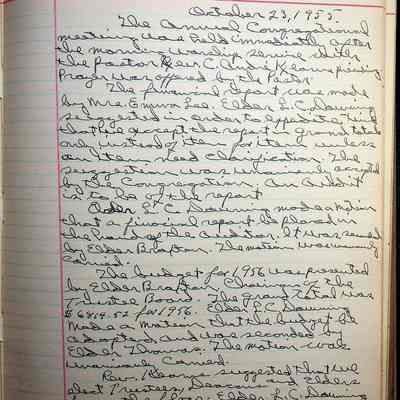 October 23, 1955.
The Annual Congregational
meeting was held immediately after
the morning worship service with
the Pastor Rev. C. André Kearns presiding
Prayer was offered by the Pastor.
The financial report was made
by Mrs. Emma Lee. Elder L. C. Downing
suggested in order to expedite time
that we accept the report in grand total
only instead of item for item unless
an item need clarification. The
suggestion was unanimously accepted
by the Congregation. An Audit
is to be of the report
Elder L. C. Downing made a motion
that a financial report be placed in
the hands of the Auditor. It was seconded
by Elder Brafton. The motion was unanimously
carried.
The budget for 1956 was presented
by Elder Brafton, Chairman of the
Trustee Board. The Grand total was
$6814.52 for 1956. Elder L. C. Downing
made a motion that the budget be
adopted, and was seconded by
Elder Thomas. The motion was
unanimously carried.
Rev. Kearns suggested that we
elect Trustees, Deacons and Elders
from the floor. Elder L. C. Downing